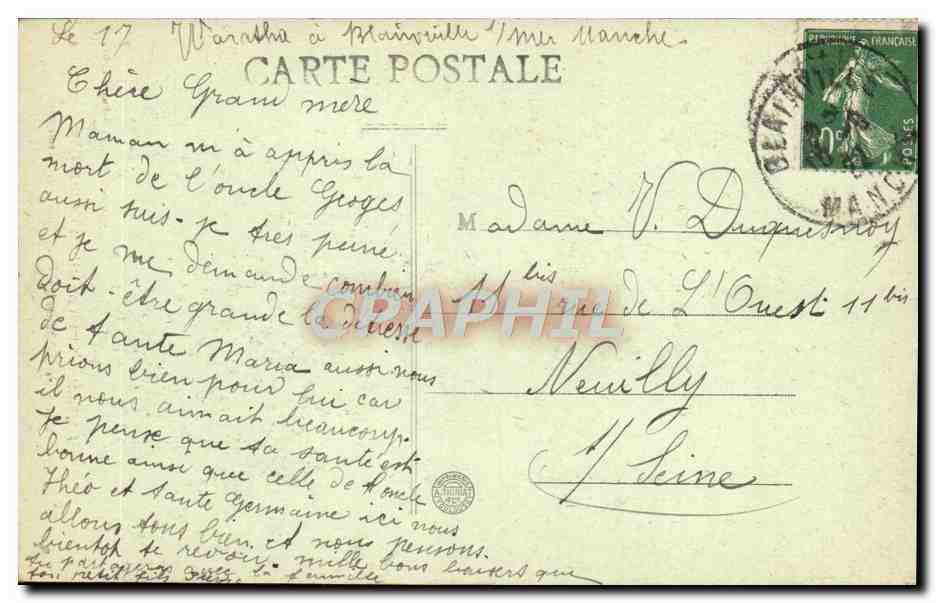 Le 17 Wartha à Blainville s/mer Manche.
CARTE POSTALE
Chère Grand mere
Maman m'à appris la
mort de l'oncle Georges
aussi suis-je tres peiné
et je me demande combien
doit-être grande la detresse
de tante Maria aussi nous
prions bien pour lui car
il nous aimait beaucoup.
Je pense que ta santé est
bonne ainsi que celle de l'oncle
Theo et tante Germaine ici nous
allons tous bien et nous pensons
bientot te revoir. mille bons baisers que
tu partageras avec la famille
ton petit fils
REPUBLIQUE FRANÇAISE
POSTES
BLAINVILLE
MANCHE
Madame V. Duquesnoy
11 bis rue de L'Ouest 11 bis
Neuilly
s/ Seine
CRAPHIL